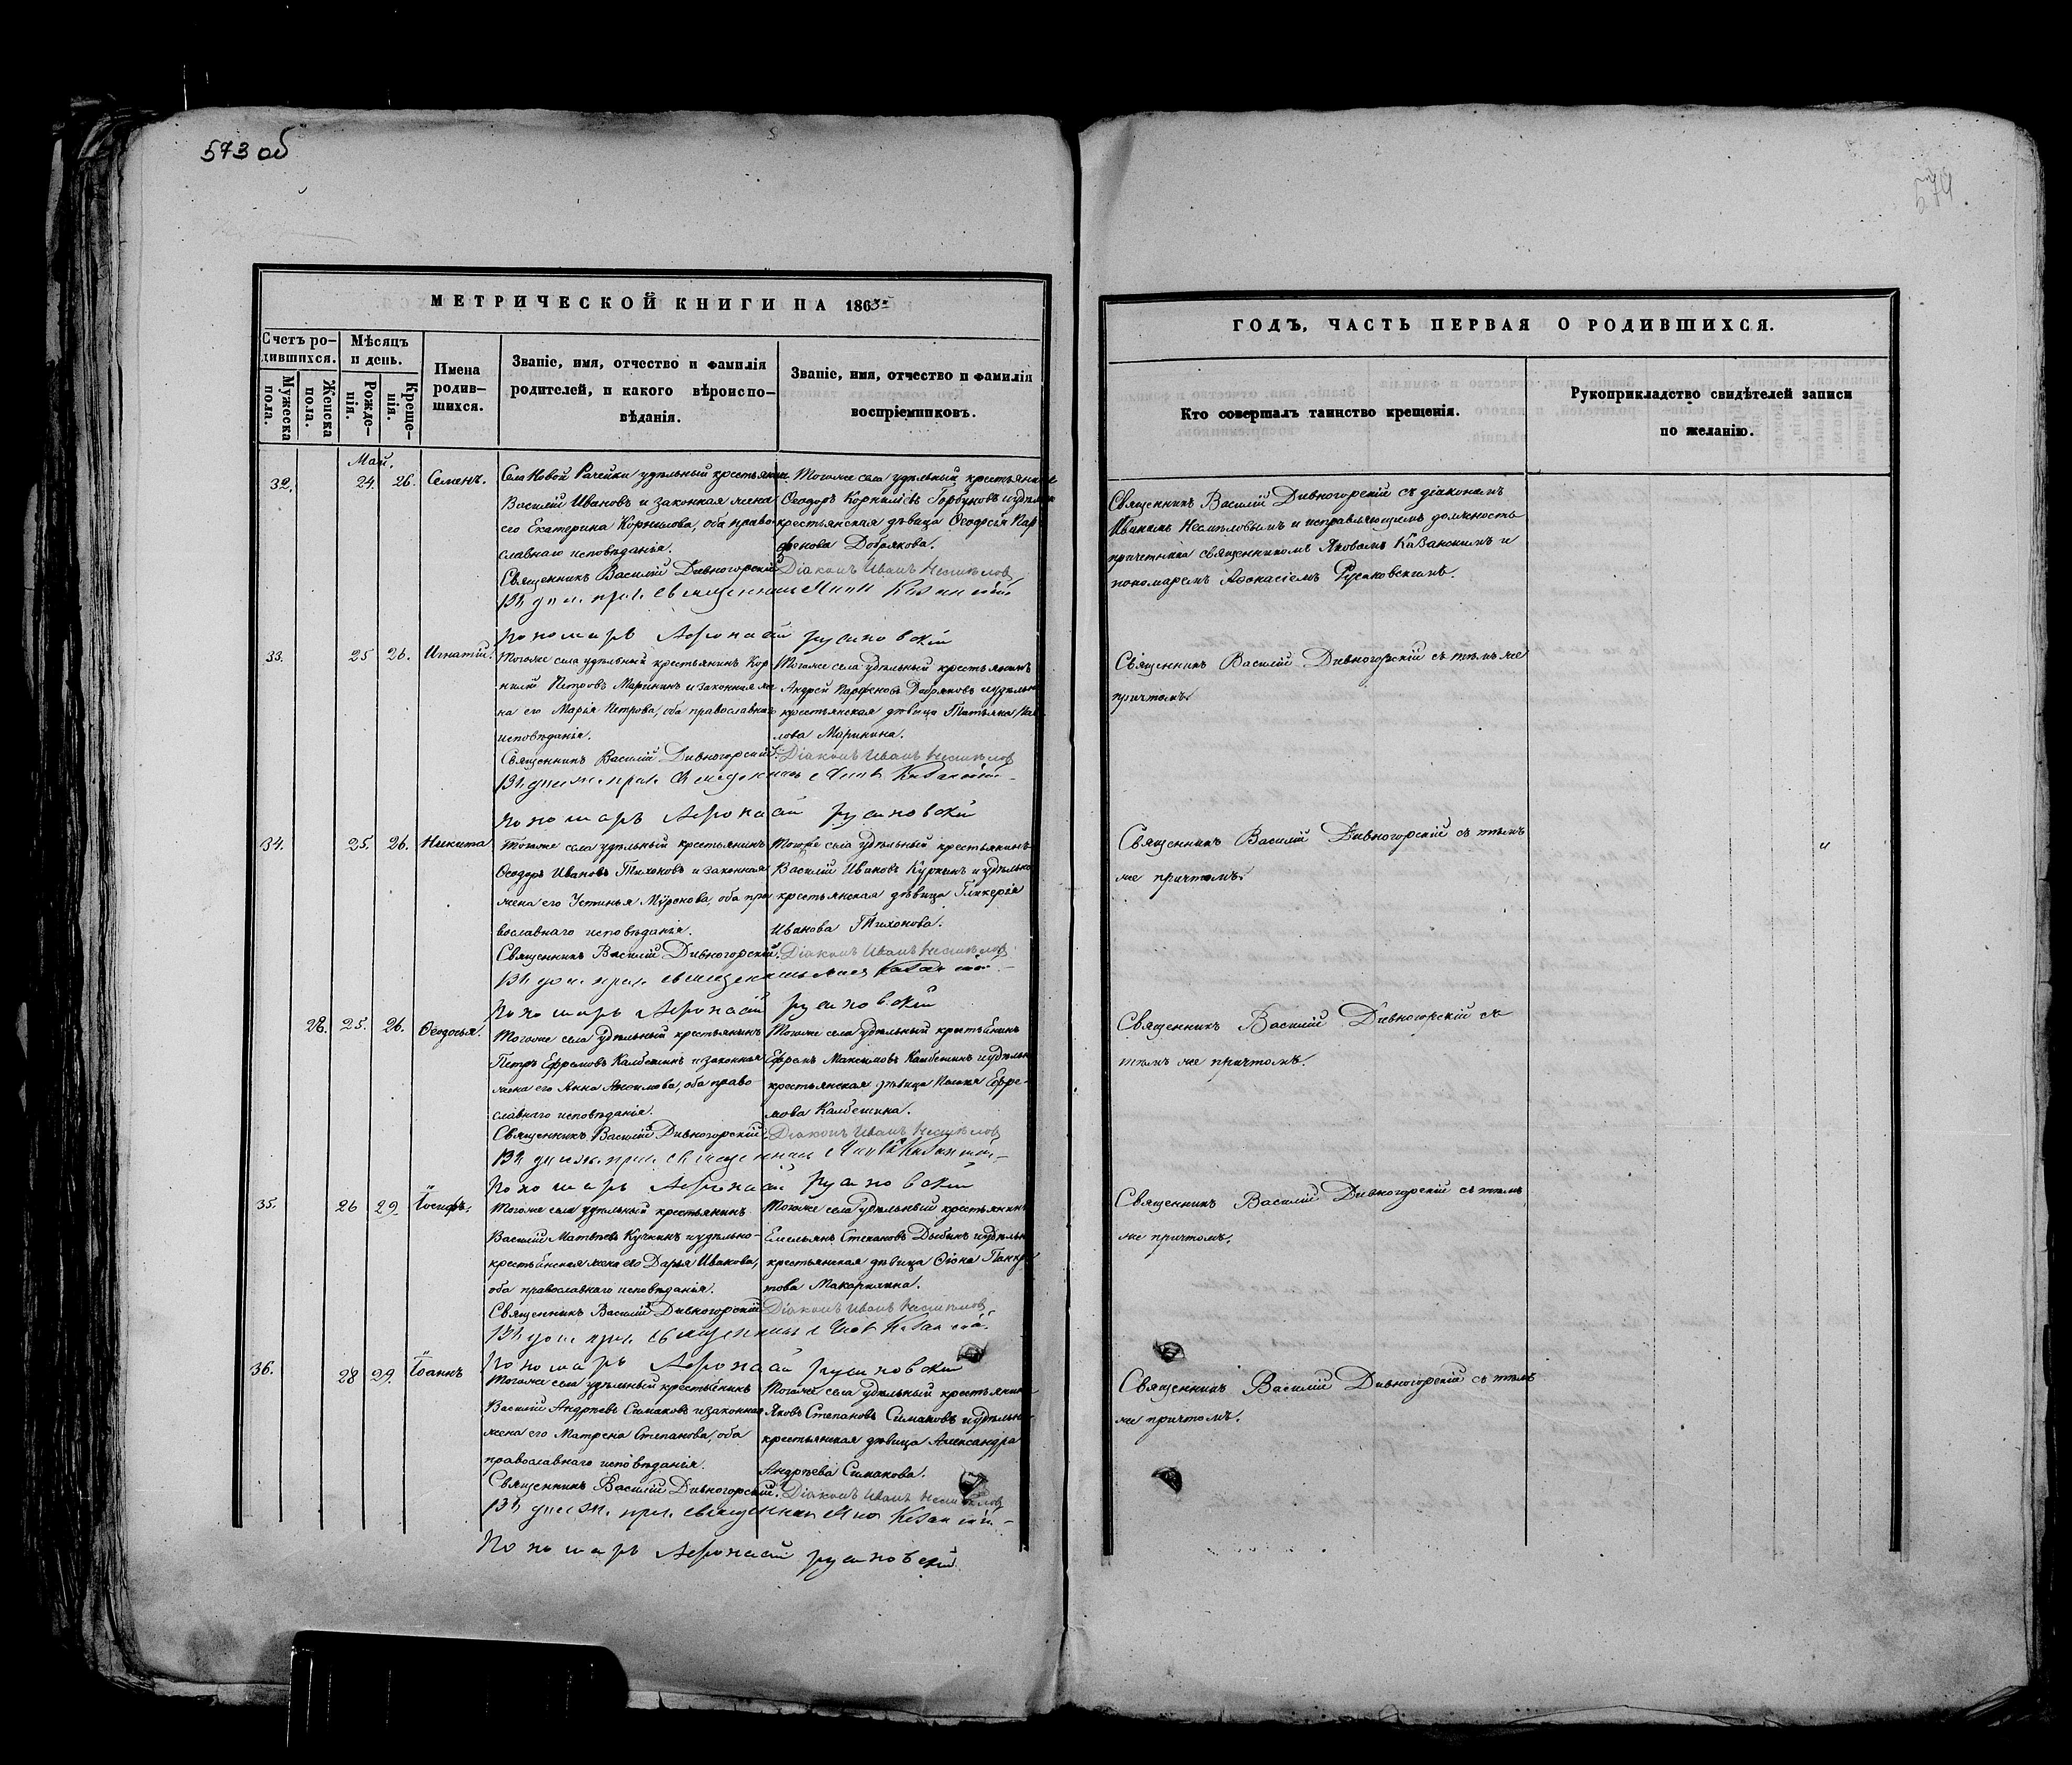 573 об
574
МЕТРИЧЕСКОЙ КНИГИ НА 1863й
Счетъ ро-
дившихся.
Мѣсяцъ
и день.
Мужеска
пола.
Женска
пола.
Рожде-
нія.
Креще-
нія.
Имена
родив-
шихся.
Званіе, имя, отчество и фамилія
родителей, и какого вѣроиспо-
вѣданія.
Званіе, имя, отчество и фамилія
воспріемниковъ.
Май.
32. 24. 26. Семенъ.
Села Новой Рачейки удѣльный крестьянинъ
Василій Ивановъ и законная жена
его Екатерина Корнилова, оба право-
славнаго исповѣданія.
Священникъ Василій Дивногорскій
Тогоже села удѣльный крестьянинъ
Ѳеодоръ Корниліевъ Горбуновъ и удѣльн
крестьянская дѣвица Ѳеодосія Пар-
фенова Добрякова.
Діаконъ Иванъ Несмѣловъ
Пономарь Афонасій Русановскій
33. 25 26. Игнатій.
Тогоже села удѣльный крестьянинъ Кор
нилій Петровъ Марининъ и законная же
на его Марія Петрова, оба православнаго
исповѣданія.
Священникъ Василій Дивногорскій.
Тогоже села удѣльный крестьянинъ
Андрей Парфеновъ Добряковъ и удѣльн
крестьянская дѣвица Татьяна
лова Маринина.
Діаконъ Иванъ Несмѣловъ
Пономарь Афонасій Русановскій
34. 25. 26. Никита
Тогоже села удѣльный крестьянинъ
Ѳеодоръ Ивановъ Тихоновъ и законная
жена его Устинья Миронова, оба пра
вославнаго исповѣданія.
Священникъ Василій Дивногорскій.
Тогоже села удѣльный крестьянинъ
Василій Ивановъ Куркинъ и удѣльно
крестьянская дѣвица Гликерія
Иванова Тихонова.
Діаконъ Иванъ Несмѣловъ
Пономарь Афонасій Русановскій
28. 25. 26. Ѳеодосья.
Тогоже села удѣльный крестьянинъ
Петръ Ефремовъ Калбешинъ и законная
жена его Анна, оба право-
славнаго исповѣданія.
Священникъ Василій Дивногорскій.
Тогоже села удѣльный крестьянинъ
Ефремъ Максимовъ Калбешинъ и удѣльн
крестьянская дѣвица Ефре-
мова Калбешина.
Діаконъ Иванъ Несмѣловъ
Пономарь Афонасій Русановскій
35. 26 29. Іосифъ.
Тогоже села удѣльный крестьянинъ
Василій Матвѣевъ Кучкинъ и удѣльно-
крестьянская жена его Дарья Иванова,
оба православнаго исповѣданія.
Священникъ Василій Дивногорскій
Тогоже села удѣльный крестьянинъ
Емельянъ Степановъ Дыбинъ и удѣльн
крестьянская дѣвица Панкра
това Макарихина.
Діаконъ Иванъ Несмѣловъ
Пономарь Афонасій Русановскій
36. 28 29. Іоаннъ
Тогоже села удѣльный крестьянинъ
Василій Андрѣевъ Симаковъ и законная
жена его Матрена Степанова, оба
православнаго исповѣданія.
Священникъ Василій Дивногорскій.
Тогоже села удѣльный крестьянинъ
Яковъ Степановъ Симаковъ и удѣльно-
крестьянская дѣвица Александра
Андрѣева Симакова.
Діаконъ Иванъ Несмѣловъ
Пономарь Афонасій Русановскій
ГОДЪ, ЧАСТЬ ПЕРВАЯ О РОДИВШИХСЯ.
Кто совершалъ таинство крещенія.
Рукоприкладство свидѣтелей записи
по желанію.
Священникъ Василій Дивногорскій съ діакономъ
Иваномъ Несмѣловымъ и исправляющимъ должность
причетника священникомъ Яковомъ Казанскимъ и
пономаремъ Афонасіемъ Русановскимъ.
Священникъ Василій Дивногорскій съ тѣмъ же
причтомъ.
Священникъ Василій Дивногорскій съ тѣмъ
же причтомъ.
Священникъ Василій Дивногорскій съ
тѣмъ же причтомъ.
Священникъ Василій Дивногорскій съ тѣмъ
же причтомъ.
Священникъ Василій Дивногорскій съ тѣмъ
же причтомъ.